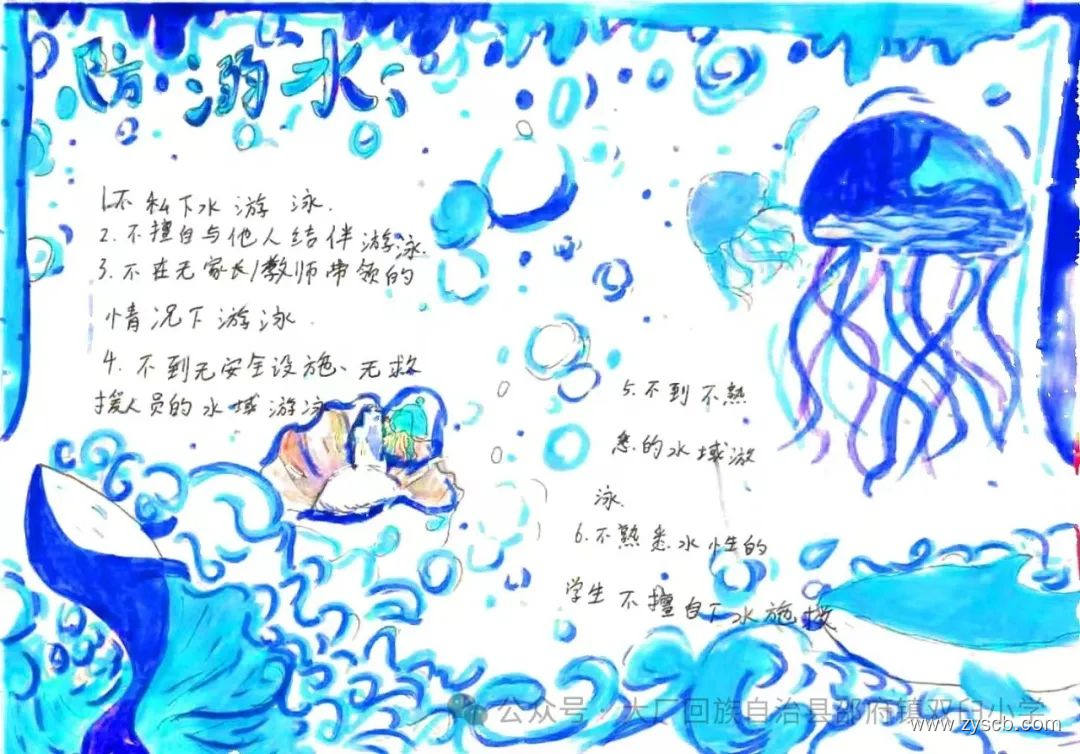 防溺水
1.不私下水游泳.
2.不擅自与他人结伴游泳.
3.不在无家长/教师带领的
情况下游泳.
4.不到无安全设施、无救
援人员的水域游泳
5.不到不熟
悉的水域游
泳.
6.不熟悉水性的
学生不擅自下水施救
公众号·大厂回族自治县邵府镇双臼小学
www.zyscb.com